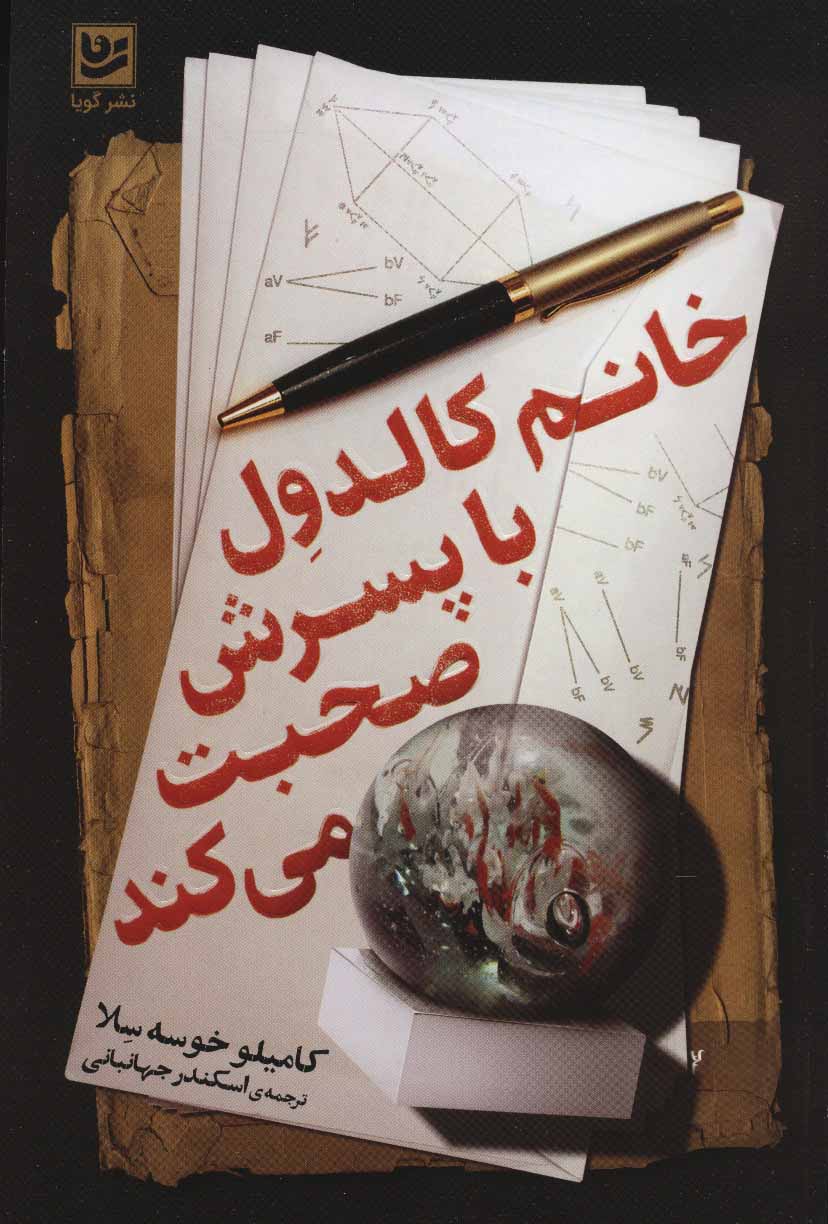 نشر گویا
bV
aV
bF
aF
خانم کالدوِل
با پسرش
صحبت
می‌کند
bV
bF
bF
aF
aV
aV
bV
bV
bF
bF
کامیلو خوسه سِلا
ترجمه‌ی اسکندر جهانبانی